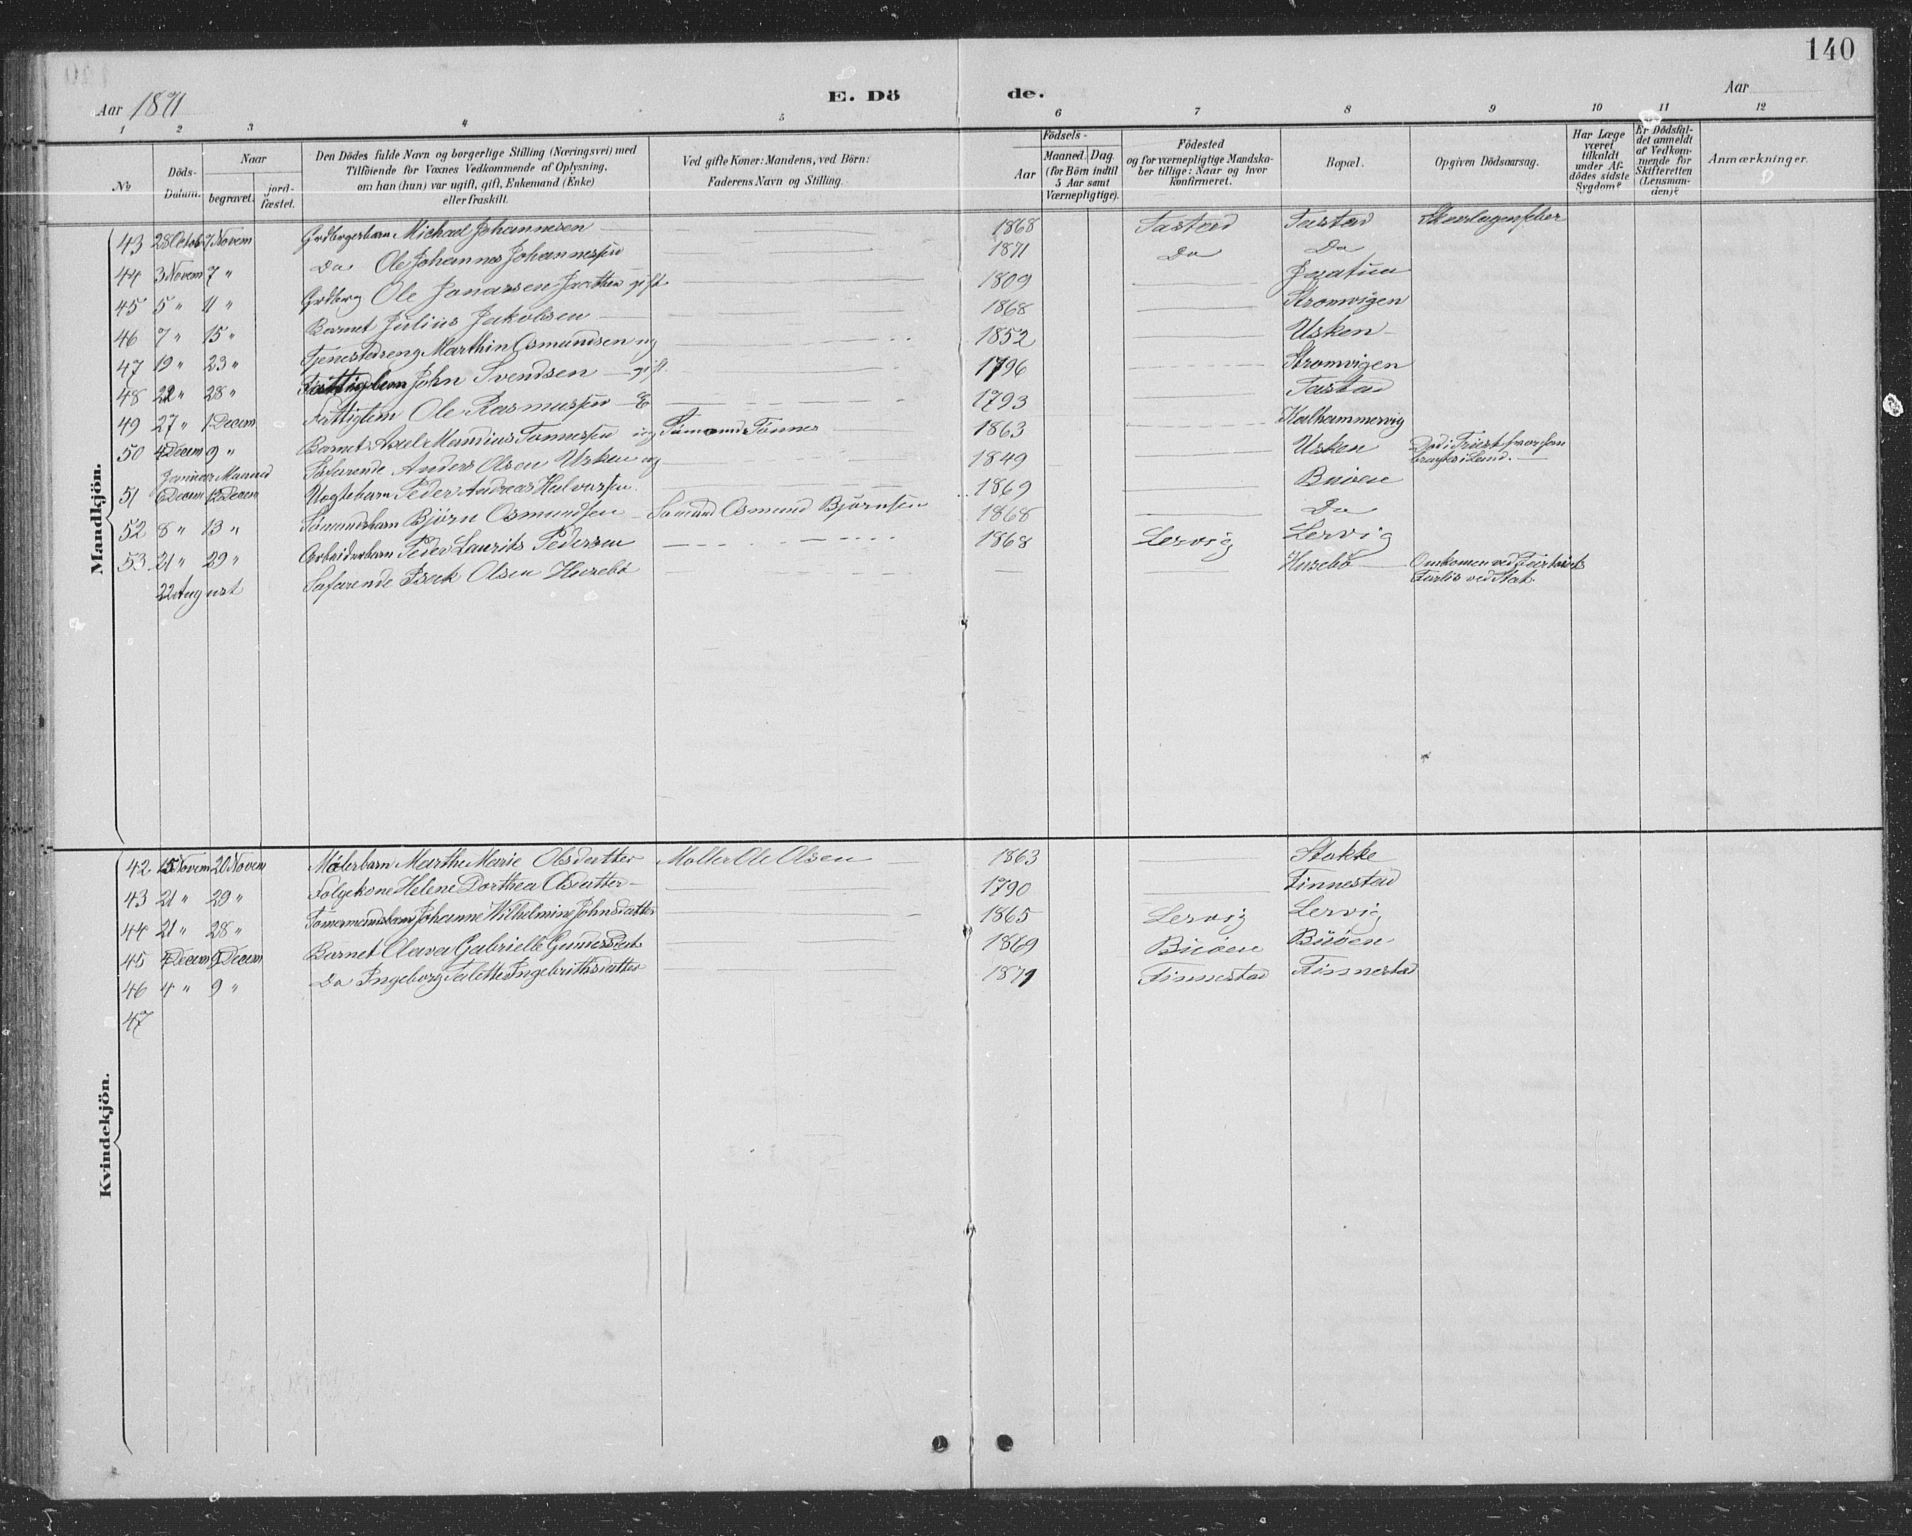 140
Aar 1871
E. Dö de.
Aar
1 2 3 4 5 6 7 8 9 10 11 12
No
Döds-Datum.
Naar
begravet.
jord-fæstet.
Den Dödes fulde Navn og borgerlige Stilling (Næringsvei) med
Tilföiende for Voxnes Vedkommende af Oplysning,
om han (hun) var ugift, gift, Enkemand (Enke)
eller fraskilt.
Ved gifte Koner: Mandens, ved Börn:
Faderens Navn og Stilling.
Födsels-
Aar
Maaned. Dag.
(for Börn indtil
5 Aar samt
Værnepligtige).
Födested
og for værnepligtige Mandska-
ber tillige: Naar og hvor
konfirmeret.
Bopæl.
Opgiven Dödsaarsag.
Har Læge
været
tilkaldt
under Af-
dödes sidste
Sygdom?
Er Dödsfal-
det anmeldt
af Vedkom-
mende for
Skifteretten
(Lensman-
den)?
Anmærkninger.
Mandkjön.
43 28 Octob 7 Novem Grdbrgerbarn Michael Johannesen 1868 Tastad Tastad Skarlagensfeber
44 3 Novem 7 " Do Ole Johannes Johannessen 1871 Do Do
45 5 " 11 " Grdbrg Ole Jonassen gift 1809
46 7 " 15 " Barnet Julius Jakobsen 1868 Stromvigen
47 19 " 23 " Tjenestedreng Marthin Osmundsen ug 1852 Usken
48 22 " 28 " Fattiglem John Svendsen gift 1796 Stromvigen
49 27 " 1 Decem Fattiglem Ole Rasmussen E 1793 Tastad
50 4 Decem 9 " Barnet Axel Mandius Tonnessen ug Tönnes 1863 Kalhammervig
Januar Maaned Söfarende Anders Olsen Usken ug 1849 Usken
51 6 Decem 12 Decem Vogtebarn Peder Andreas Halvorsen 1869 Buöen
52 8 " 13 " Sömandsbarn Björn Osmundsen Sömand Osmund Björnsen 1868 Do
53 21 " 29 " Arbeiderbarn Peder Laurits Pedersen 1868 Lervig Lervig
22 August Söfarende Isak Olsen Husebö Husebö Omkomen ved
Forlis ved Stat
Kvindekjön.
42 15 Novem 20 Novem Möllerbarn Marthe Marie Olsdatter Moller Ole Olsen 1863 Stokke
43 21 " 29 " Folgekone Helene Dorthea Olsdatter 1790 Finnestad
44 21 " 28 " Tömermandsbarn Johanne Wilhelmine Johnsdatter 1865 Lervig Lervig
45 Decem Decem Barnet Olava Gabrielle Gundersdat 1869 Buöen Buöen
46 4 " 9 " Do Ingeborg Talette Ingebrithsdatter 1871 Finnestad Finnestad
47